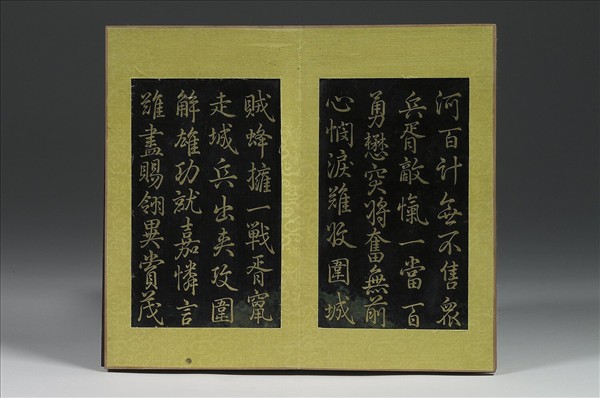 河百計無不售眾
兵胥敵愾一當百
勇懋突將奮無前
心憫淚難收圍城
賊蜂擁一戰胥竄
走城兵出夾攻圍
解雄功就嘉憐言
難盡賜翎異賞茂